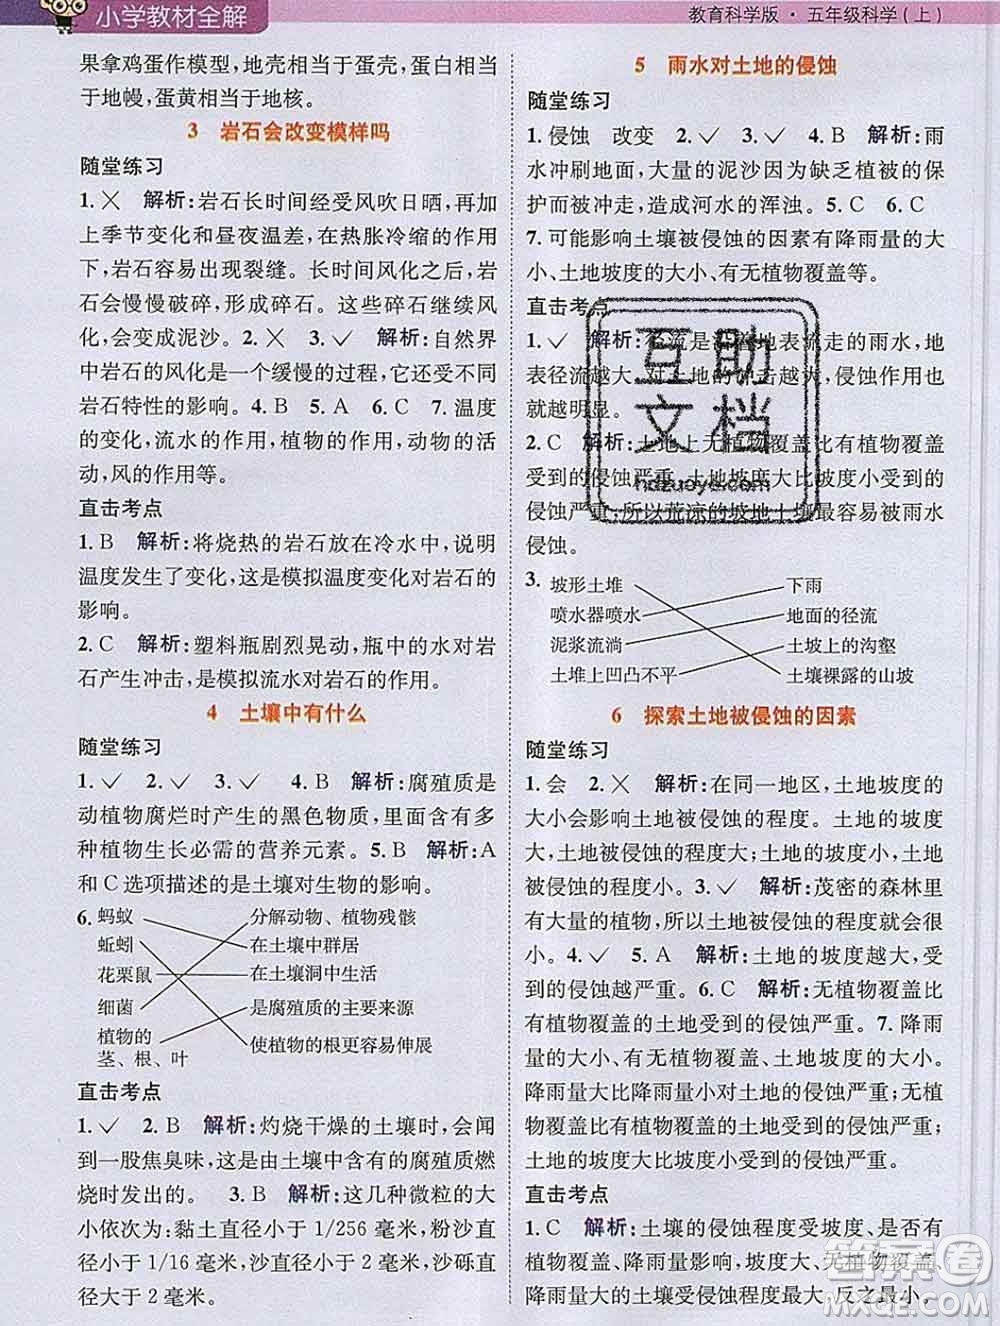 小学教材全解
教育科学版·五年级科学(上)
果拿鸡蛋作模型,地壳相当于蛋壳,蛋白相当
于地幔,蛋黄相当于地核。
3 岩石会改变模样吗
随堂练习
1.✕ 解析:岩石长时间经受风吹日晒,再加
上季节变化和昼夜温差,在热胀冷缩的作用
下,岩石容易出现裂缝。长时间风化之后,岩
石会慢慢破碎,形成碎石。这些碎石继续风
化,会变成泥沙。2.✕ 3.✓ 解析:自然界
中岩石的风化是一个缓慢的过程,它还受不同
岩石特性的影响。4.B 5.A 6.C 7.温度
的变化,流水的作用,植物的作用,动物的活
动,风的作用等。
直击考点
1.B 解析:将烧热的岩石放在冷水中,说明
温度发生了变化,这是模拟温度变化对岩石的
影响。
2.C 解析:塑料瓶剧烈晃动,瓶中的水对岩
石产生冲击,是模拟流水对岩石的作用。
4 土壤中有什么
随堂练习
1.✓ 2.✓ 3.✓ 4.B 解析:腐殖质是
动植物腐烂时产生的黑色物质,是土壤里许多
种植物生长必需的营养元素。5.B 解析:A
和C选项描述的是土壤对生物的影响。
6.蚂蚁 分解动物、植物残骸
蚯蚓 在土壤中群居
花栗鼠 在土壤洞中生活
细菌 是腐殖质的主要来源
植物的
茎、根、叶 使植物的根更容易伸展
直击考点
1.✓ 2.B 解析:灼烧干燥的土壤时,会闻
到一股焦臭味,这是由土壤中含有的腐殖质燃
烧时发出的。 3.B 解析:这几种微粒的大
小依次为:黏土直径小于1/256毫米,粉沙直
径小于1/16毫米,沙直径小于2毫米,沙砾直
径大于2毫米。
5 雨水对土地的侵蚀
随堂练习
1.侵蚀 改变 2.✓ 3.✓ 4.B 解析:雨
水冲刷地面,大量的泥沙因为缺乏植被的保
护而被冲走,造成河水的浑浊。5.C 6.C
7.可能影响土壤被侵蚀的因素有降雨量的大
小、土地坡度的大小、有无植物覆盖等。
直击考点
1.✓ 解析:径流是沿着地表流走的雨水,地
表径流越大,对土地的冲击越大,侵蚀作用也
就越明显。
2.C 解析:土地上无植物覆盖比有植物覆盖
受到的侵蚀严重,土地坡度大比坡度小受到的
侵蚀严重;所以荒凉的坡地土地最易被雨水
侵蚀。
3.坡形土堆 下雨
喷水器喷水 地面的径流
泥浆流淌 土坡上的沟壑
土堆上凹凸不平 土壤裸露的山坡
6 探索土地被侵蚀的因素
随堂练习
1.会 2.✕ 解析:在同一地区,土地坡度的
大小会影响土地被侵蚀的程度。土地的坡度
大,土地被侵蚀的程度大;土地的坡度小,土地
被侵蚀的程度小。3.✓ 解析:茂密的森林里
有大量的植物,所以土地被侵蚀的程度就会很
小。 4.✓ 5.A 解析:土地的坡度越大,受
到的侵蚀越严重。6.C 解析:无植物覆盖比
有植物覆盖的土地受到的侵蚀严重。7.降雨
量的大小、有无植物覆盖、土地坡度的大小。
降雨量大比降雨量小对土地的侵蚀严重;无植
物覆盖比有植物覆盖受到的侵蚀严重;土地坡
度大比土地坡度小受到的侵蚀严重。
直击考点
1.C 解析:土壤的侵蚀程度受坡度、是否有
植物覆盖、降雨量的影响,坡度大、无植物覆盖、
降雨量大时受侵蚀程度最大,反之最小。
互助
文档
hdzuoye.com
答案圈
MXQE.COM